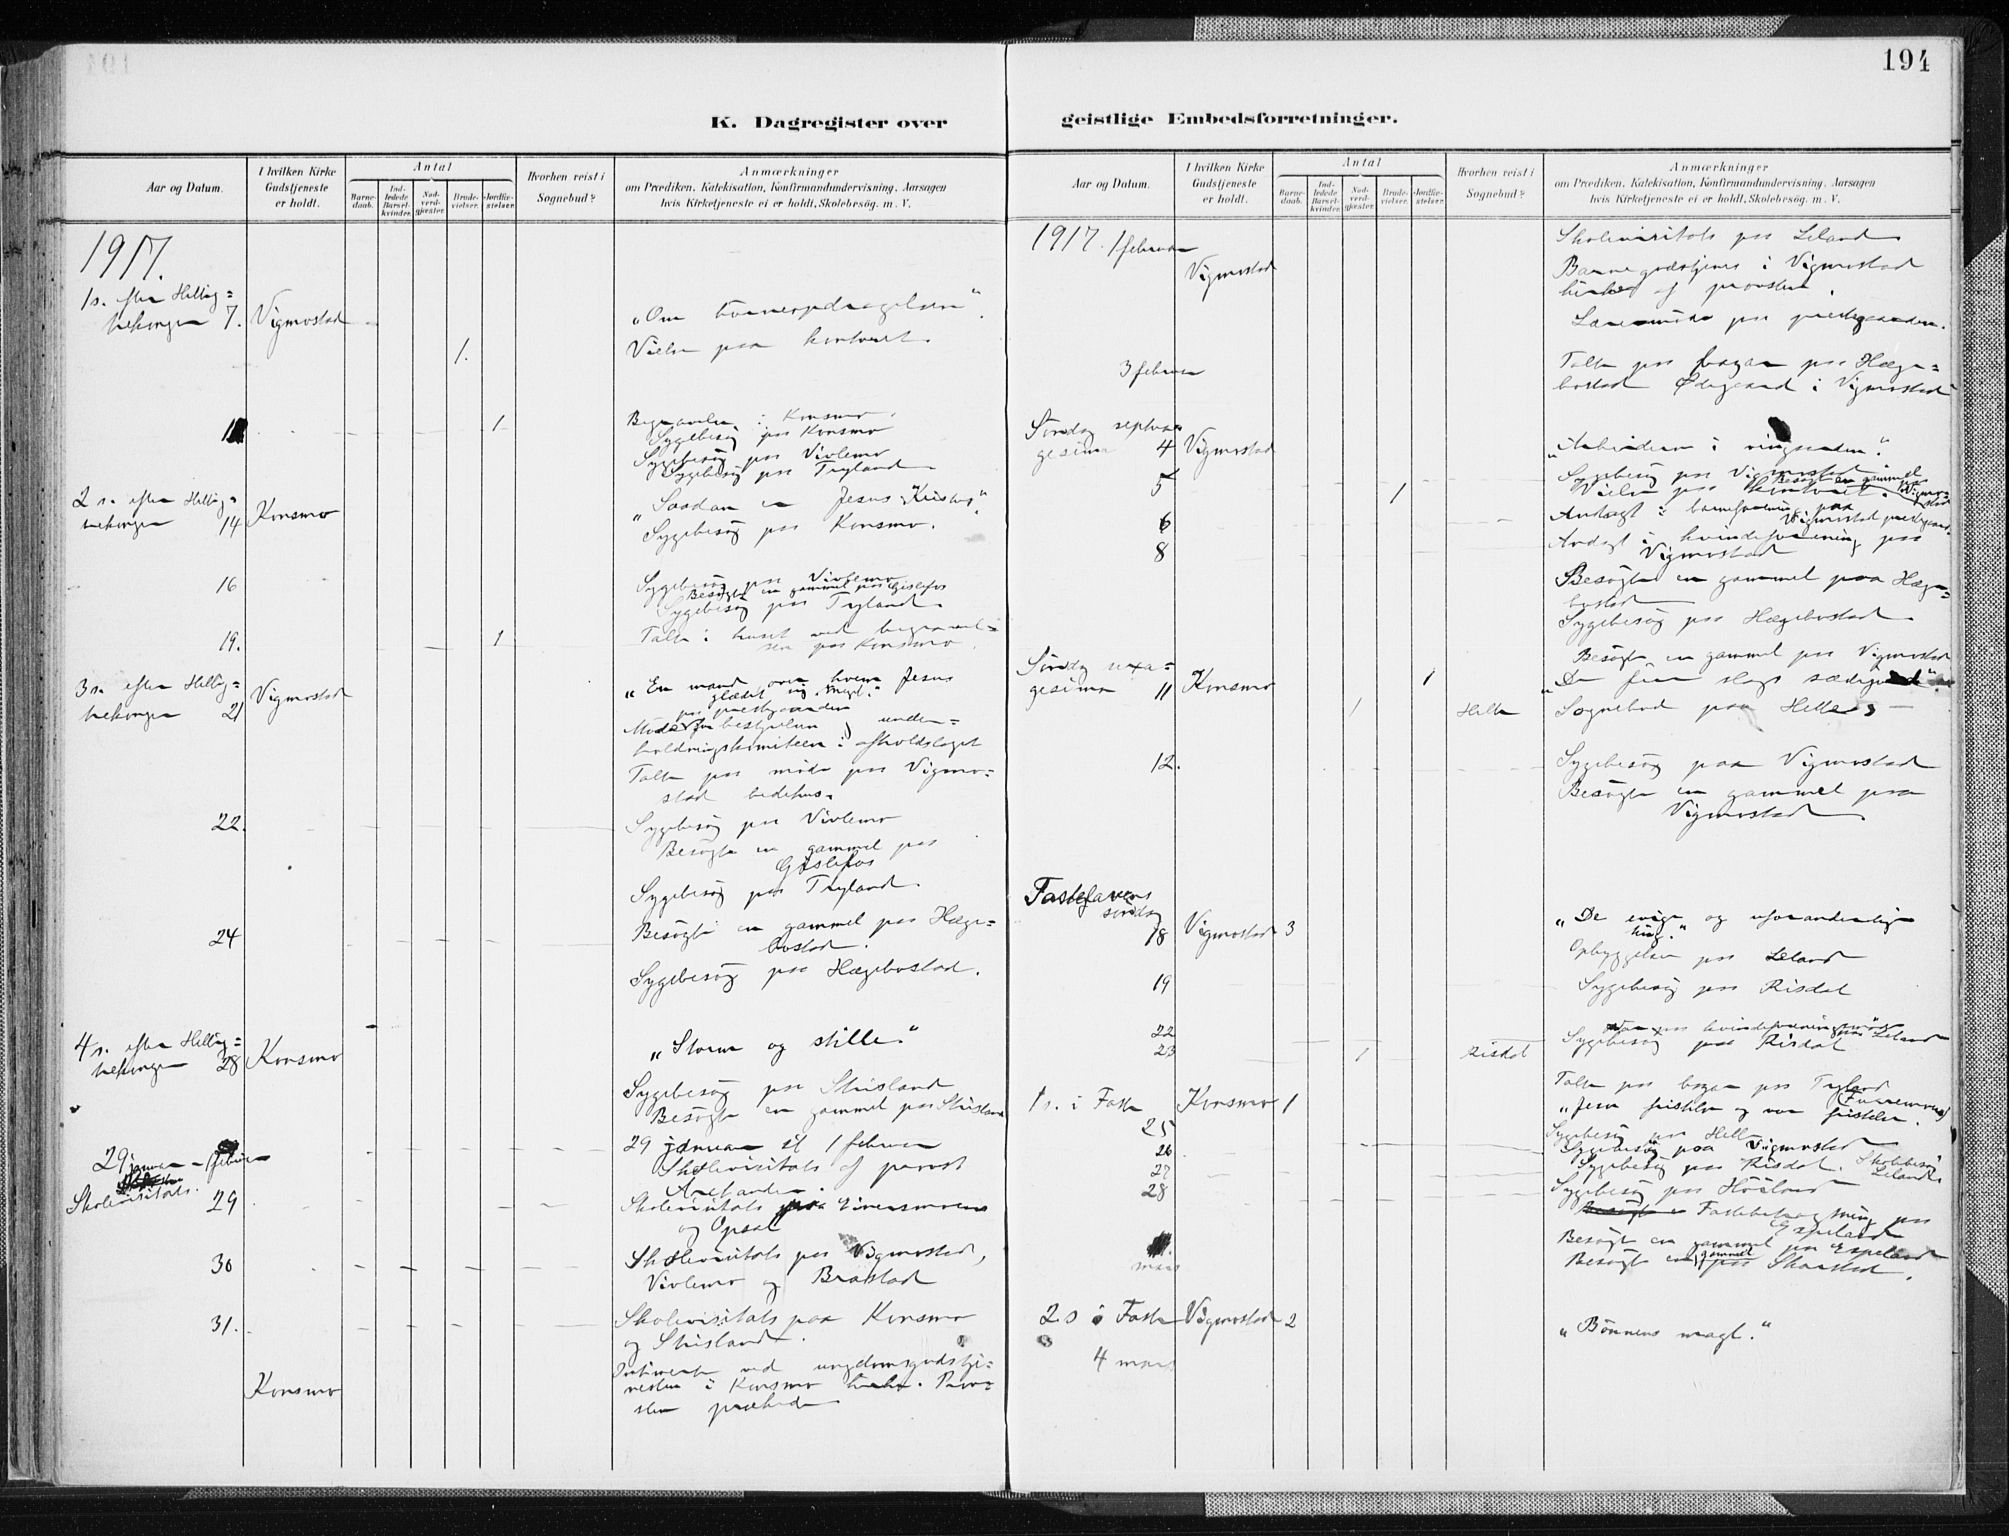 194
K. Dagregister over
Aar og Datum.
I hvilken Kirke Gudstjeneste er holdt.
Antal
Barne-daab.
Ind-ledede Barsel-kvinder.
Nad-verd-gjester.
Brude-vielser.
Jordfæ-stelser.
Hvorhen reist i Sognebud?
Anmærkninger
om Prædiken, Katekisation, Konfirmandundervisning, Aarsagen
hvis Kirketjeneste ei er holdt, Skolebesøg. m. V.
1917.
1 s. efter Hellig=
trekonger 7. Vigmostad
"Om børneopdragelsen".
1. Vielse paa kontoret.
1 Begravelse i Konsmo.
Sygebesøg paa Konsmo
Sygebesøg paa Vivlemo
Sygebesøg paa Tryland
2 s. efter Hellig=
trekonger 14 Konsmo
"Saadan er Jesus Kristus".
Sygebesøg paa Konsmo.
16
Sygebesøg paa Vivlemo
Besøgte en gammel paa Gislefos
Sygebesøg paa Tryland.
19. 1 Talte i huset ved begravel=
sen paa Konsmo.
3 s. efter Hellig=
trekonger 21 Vigmostad
"En mand over hvem Jesus
glædet sig meget."
paa prestegaarden
Møde for bestyrelsen under=
holdningskomiteen i afholdslaget
Talte paa møde paa Vigmo=
stad bedehus.
22.
Sygebesøg paa Vivlemo
Besøgte en gammel paa
Gislefos
Sygebesøg paa Tryland.
24
Besøgte en gammel paa Hæge=
bostad.
Sygebesøg paa Hægebostad.
4 s. efter Hellig=
trekonger 28 Konsmo
"Storm og stille."
Sygebesøg paa Stusland
Besøgte en gammel paa Stusland
29 januar - 1 februar
Skolevisitats.
29 januar til 1 februar
Skolevisitats af provst
29
Skolevisitats paa
og Opsal
30
Skolevisitats paa Vigmostad,
Vivlemo og Brastad
31.
Skolevisitats paa Konsmo
og Stusland.
Konsmo
ved ungdomsgudstje=
nesten i Konsmo kirke. Prov=
sten prækede
geistlige Embedsforretninger.
Aar og Datum.
I hvilken Kirke Gudstjeneste er holdt.
Antal
Barne-daab.
Ind-ledede Barsel-kvinder.
Nad-verd-gjester.
Brude-vielser.
Jordfæ-stelser.
Hvorhen reist i Sognebud?
Anmærkninger
om Prædiken, Katekisation, Konfirmandundervisning, Aarsagen
hvis Kirketjeneste ei er holdt, Skolebesøg. m. V.
1917. 1 februar
Vigmostad
Skolevisitats paa Leland
Barnegudstjenes i Vigmostad
kirke af provsten.
Læremøde paa prestegaarden.
3 februar
Talte paa bazar paa Hæge=
bostad Ødegaard i Vigmostad
Søndag septua=
gesima 4 Vigmostad
"Arbeiderne i vingaarden."
Sygebesøg paa Vigmostad
Besøgte en gammel
5 1 Vielse paa kontoret. Vigmo=
stad
6 Andagt i barneforening paa
Vigmostad prestegaard.
8 Andagt i kvindeforening paa
Vigmostad
Besøgte en gammel paa Hæge=
bostad
Sygebesøg paa Hægebostad.
Besøgte en gammel paa Vigmostad
Søndag sexa=
gesima 11 Konsmo 1
"De fire slags sædejord".
1 Helle Sognebud paa Helle
12.
Sygebesøg paa Vigmostad
Besøgte en gammel paa
Vigmostad
Fastelavens
søndag
18 Vigmostad 3
"De evige og uforanderlige
"
Opbyggelse paa Leland
19
Sygebesøg paa Risdal
22
paa kvindeforeningsmøde paa Leland
23 1 Risdal Sygebesøg paa Risdal
Talte paa bazar paa Tryland
1 s. i Faste Konsmo 1
25
"Jesu fristelse og vor fristelse."
Sygebesøg paa Helle
26
Sygebesøg paa Vigmostad
27
Sygebesøg paa Risdal. Skolebesøg
Leland
28
Sygebesøg paa Høiland
Fastebetragtning paa
Espeland
Besøgte en gammel paa Espeland
mars
Besøgte en gammel paa Skarstad.
2. s i Faste Vigmostad 2
4 mars
"Bønnens magt."